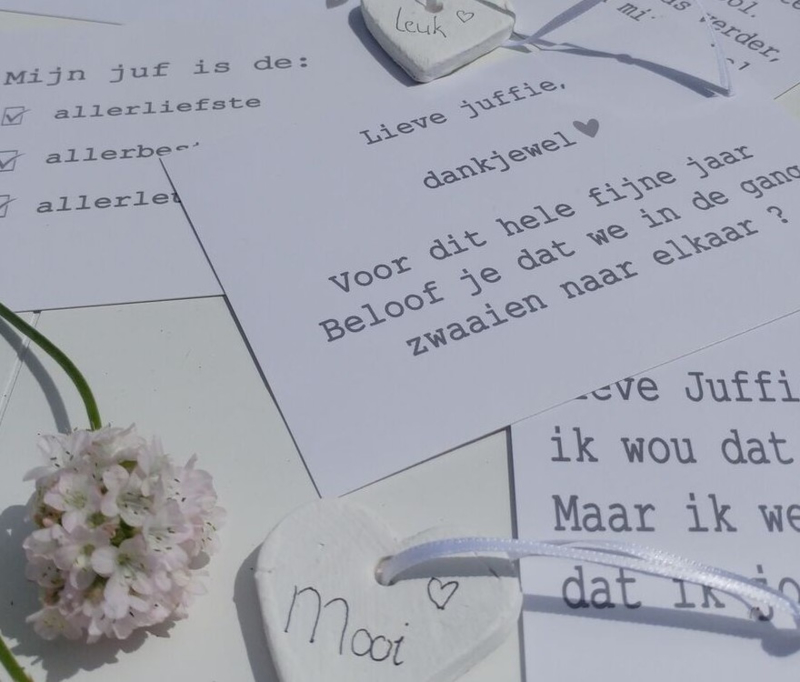 Leuk
Mijn juf is de:
allerliefste
Lieve juffie,
dankjewel
Voor dit hele fijne jaar
Beloof je dat we in de gang
zwaaien naar elkaar ?
Juffi
ik wou dat
Maar ik we
dat ik jo
Mooi